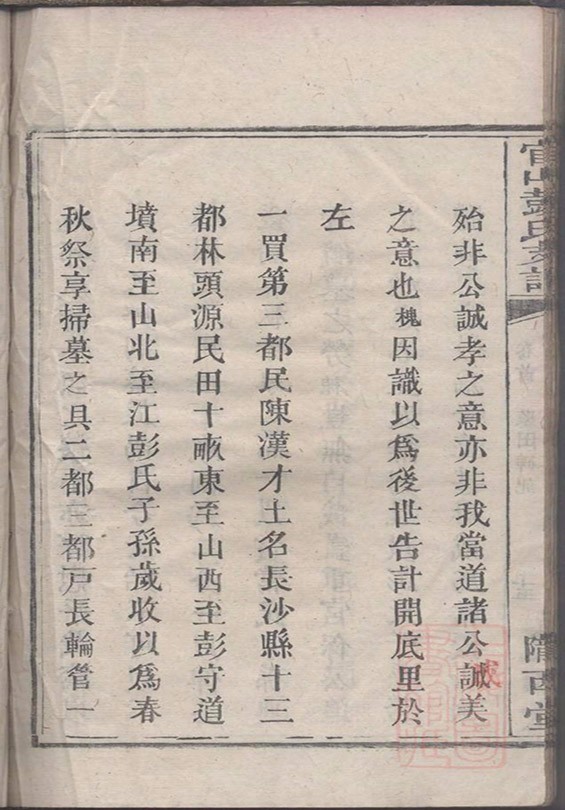 官山彭氏支譜
卷首 墓田碑記
隴西堂
殆非公誠孝之意亦非我當道諸公誠美
之意也槐因識以爲後世告計開底里於
左
一買第三都民陳漢才土名長沙縣十三
都林頭源民田十畝東至山西至彭守道
墳南至山北至江彭氏子孫歲收以爲春
秋祭享掃墓之具二都三都戸長輪管一